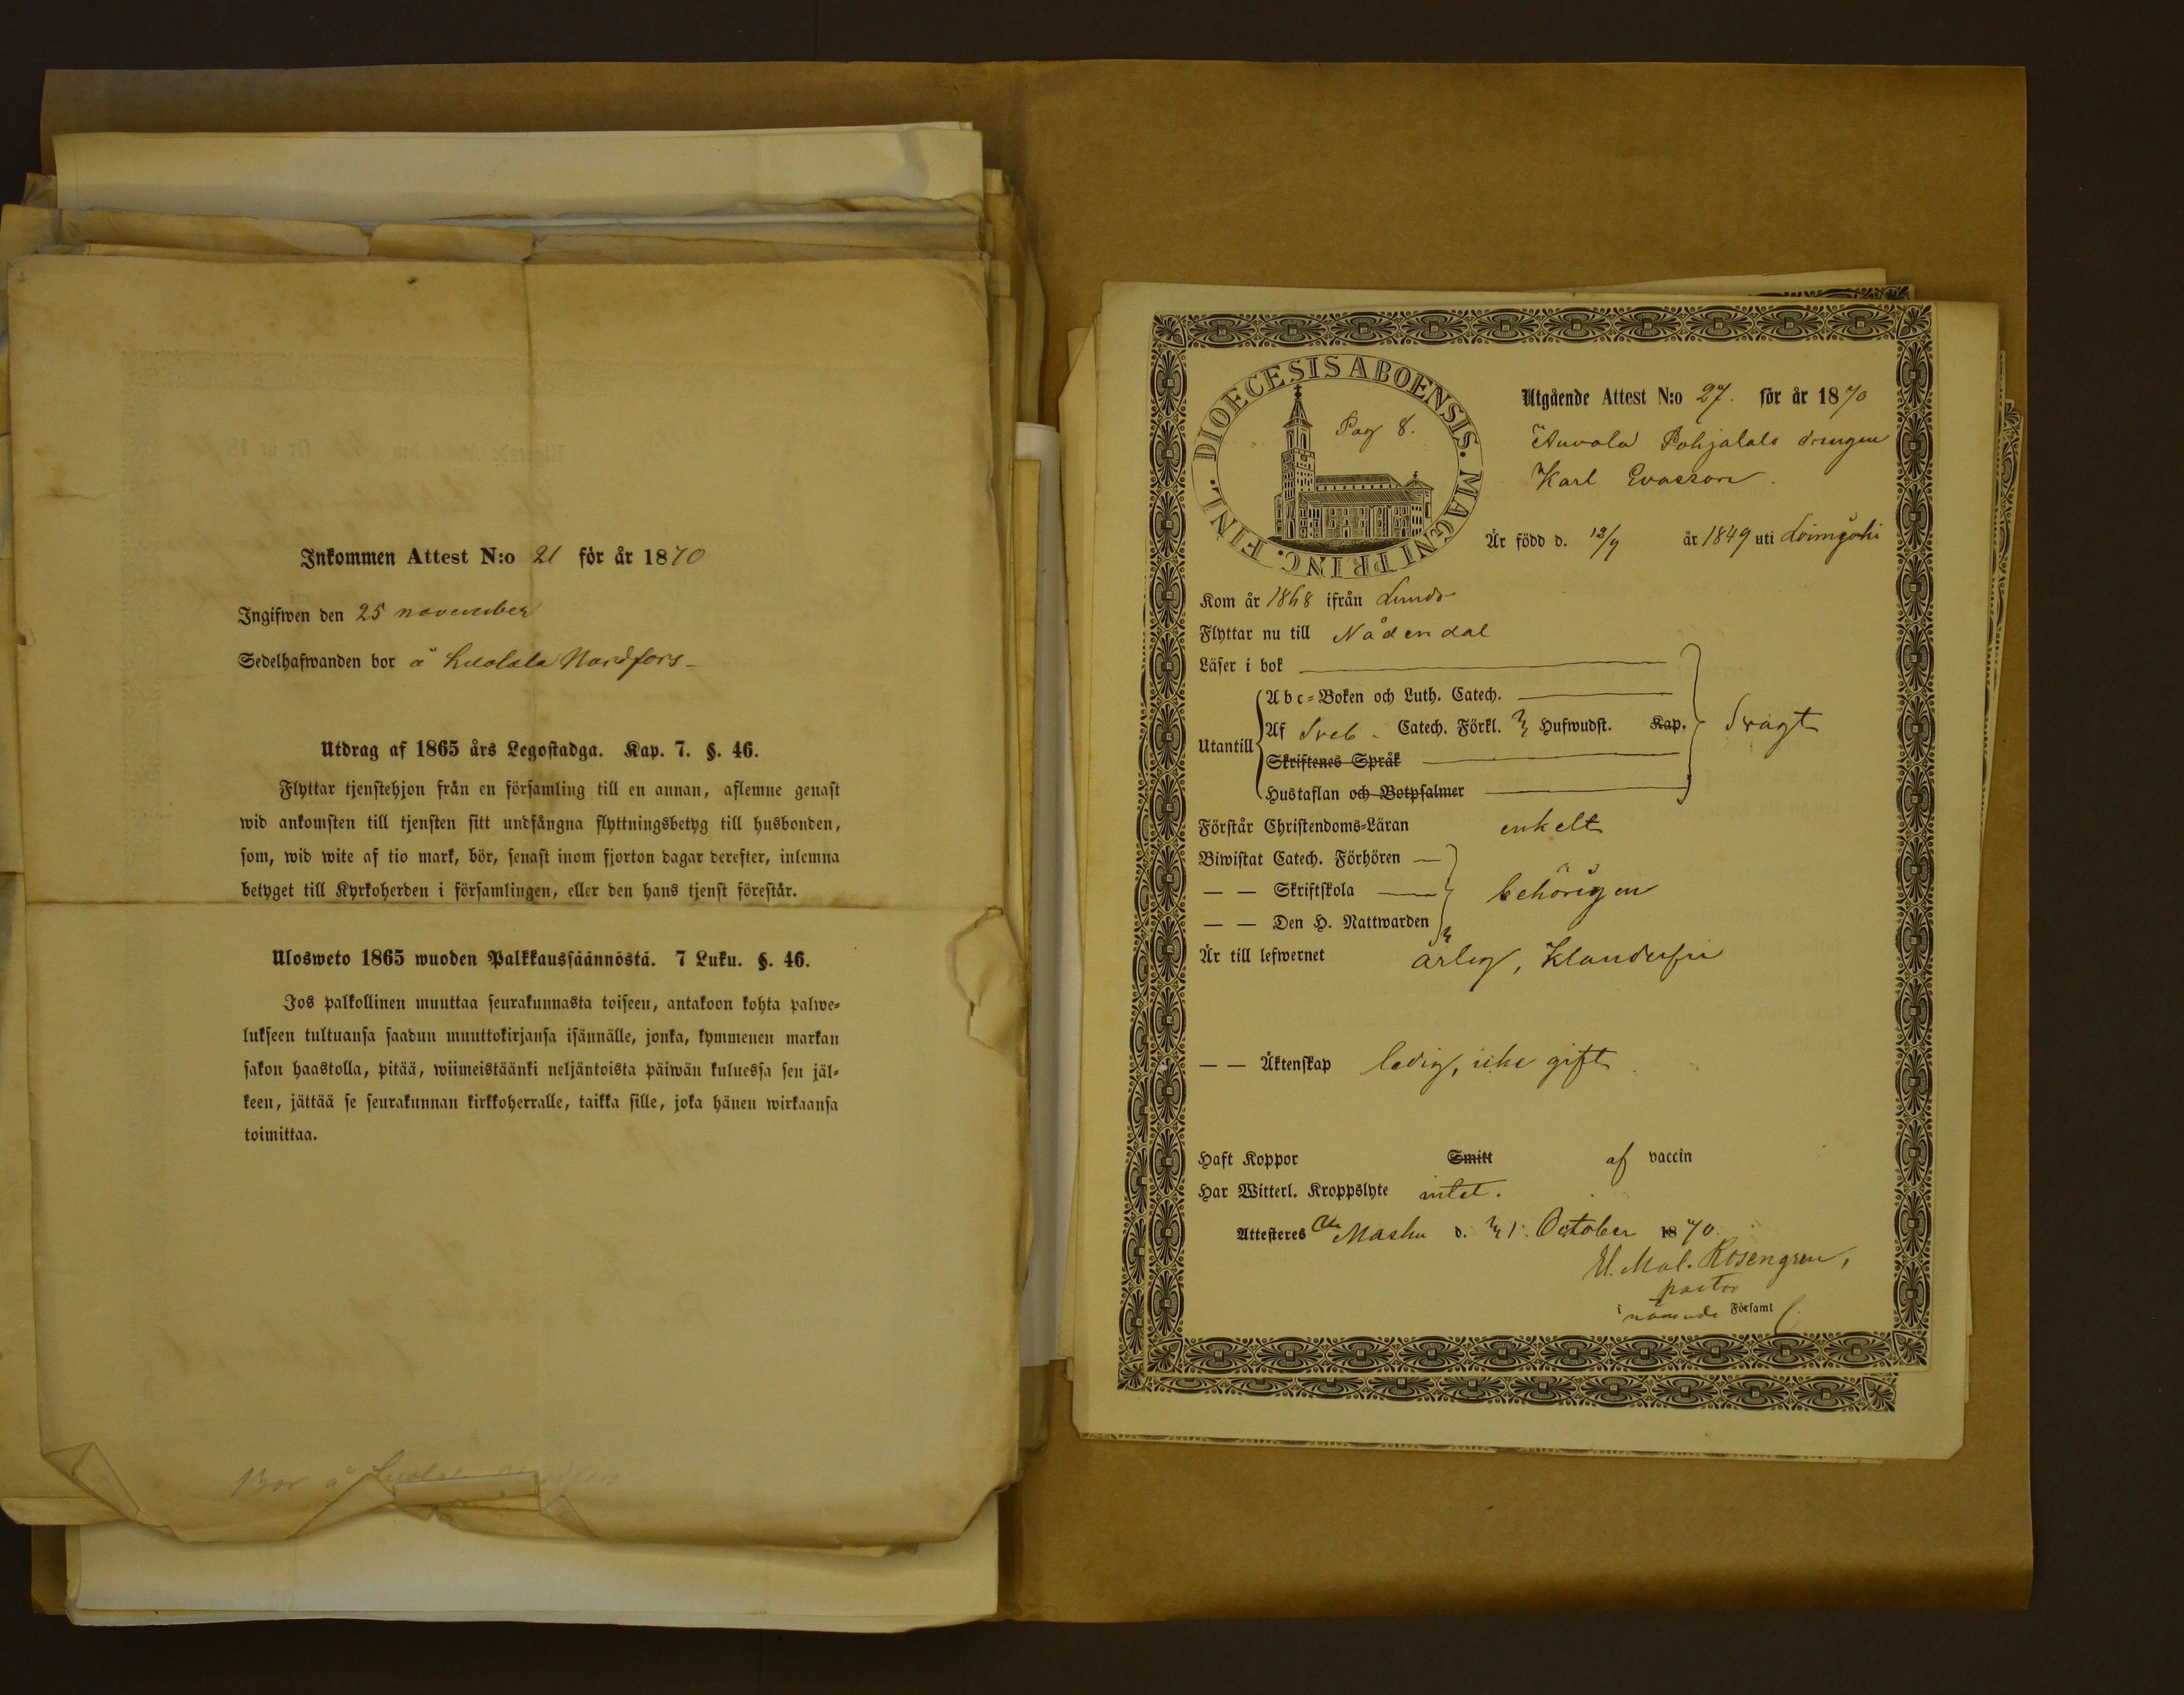 Inkommen Attest N:o 21 för år 1870
Ingifwen den 25 november
Sedelhafwanden bor å Luolala Nordfors
Utdrag af 1865 års Legostadga. Kap. 7. §. 46.
Flyttar tjenstehjon från en församling till en annan, aflemne genast
wid ankomsten till tjensten sitt undfångna flyttningsbetyg till husbonden,
som, wid wite af tio mark, bör, senast inom fjorton dagar derefter, inlemna
betyget till Kyrkoherden i församlingen, eller den hans tjenst förestår.
Ulosweto 1865 wuoden Palkkaussäännöstä. 7 Luku. §. 46.
Jos palkollinen muuttaa seurakunnasta toiseen, antakoon kohta palwe-
lukseen tultuansa saadun muuttokirjansa isännälle, jonka, kymmenen markan
sakon haastolla, pitää, wiimeistäänki neljäntoista päiwän kuluessa sen jäl-
keen, jättää se seurakunnan kirkkoherralle, taikka sille, joka hänen wirkaansa
toimittaa.
Bor å Luolala Nordfors
DIOECESIS ABOENSIS. MAGNI PRINC. FINL.
Pag 8.
Utgående Attest N:o 27. för år 1870
Auvola Pohjalals drengen
Karl Evasson.
Är född d. 12/9 år 1849 uti Loimijoki
Kom år 1868 ifrån Lundo
Flyttar nu till Nådendal
Läser i bok
Abc-Boken och Luth. Catech.
Utantill Af Sveb. Catech. Förkl. Hufwudst. Kap. Svagt
Skriftenes Språk
Hustaflan och Botpsalmer
Förstår Christendoms-Läran enkelt
Biwistat Catech. Förhören
— — Skriftskola behörigen
— — Den H. Nattwarden
Är till lefwernet ärlig, klanderfri
— — Äktenskap ledig, icke gift
Haft Koppor Smitt af vaccin
Har Witterl. Kroppslyte intet.
Attesteres Masku d. 31 October 1870.
Rosengren,
pastor
i nämnde Församl